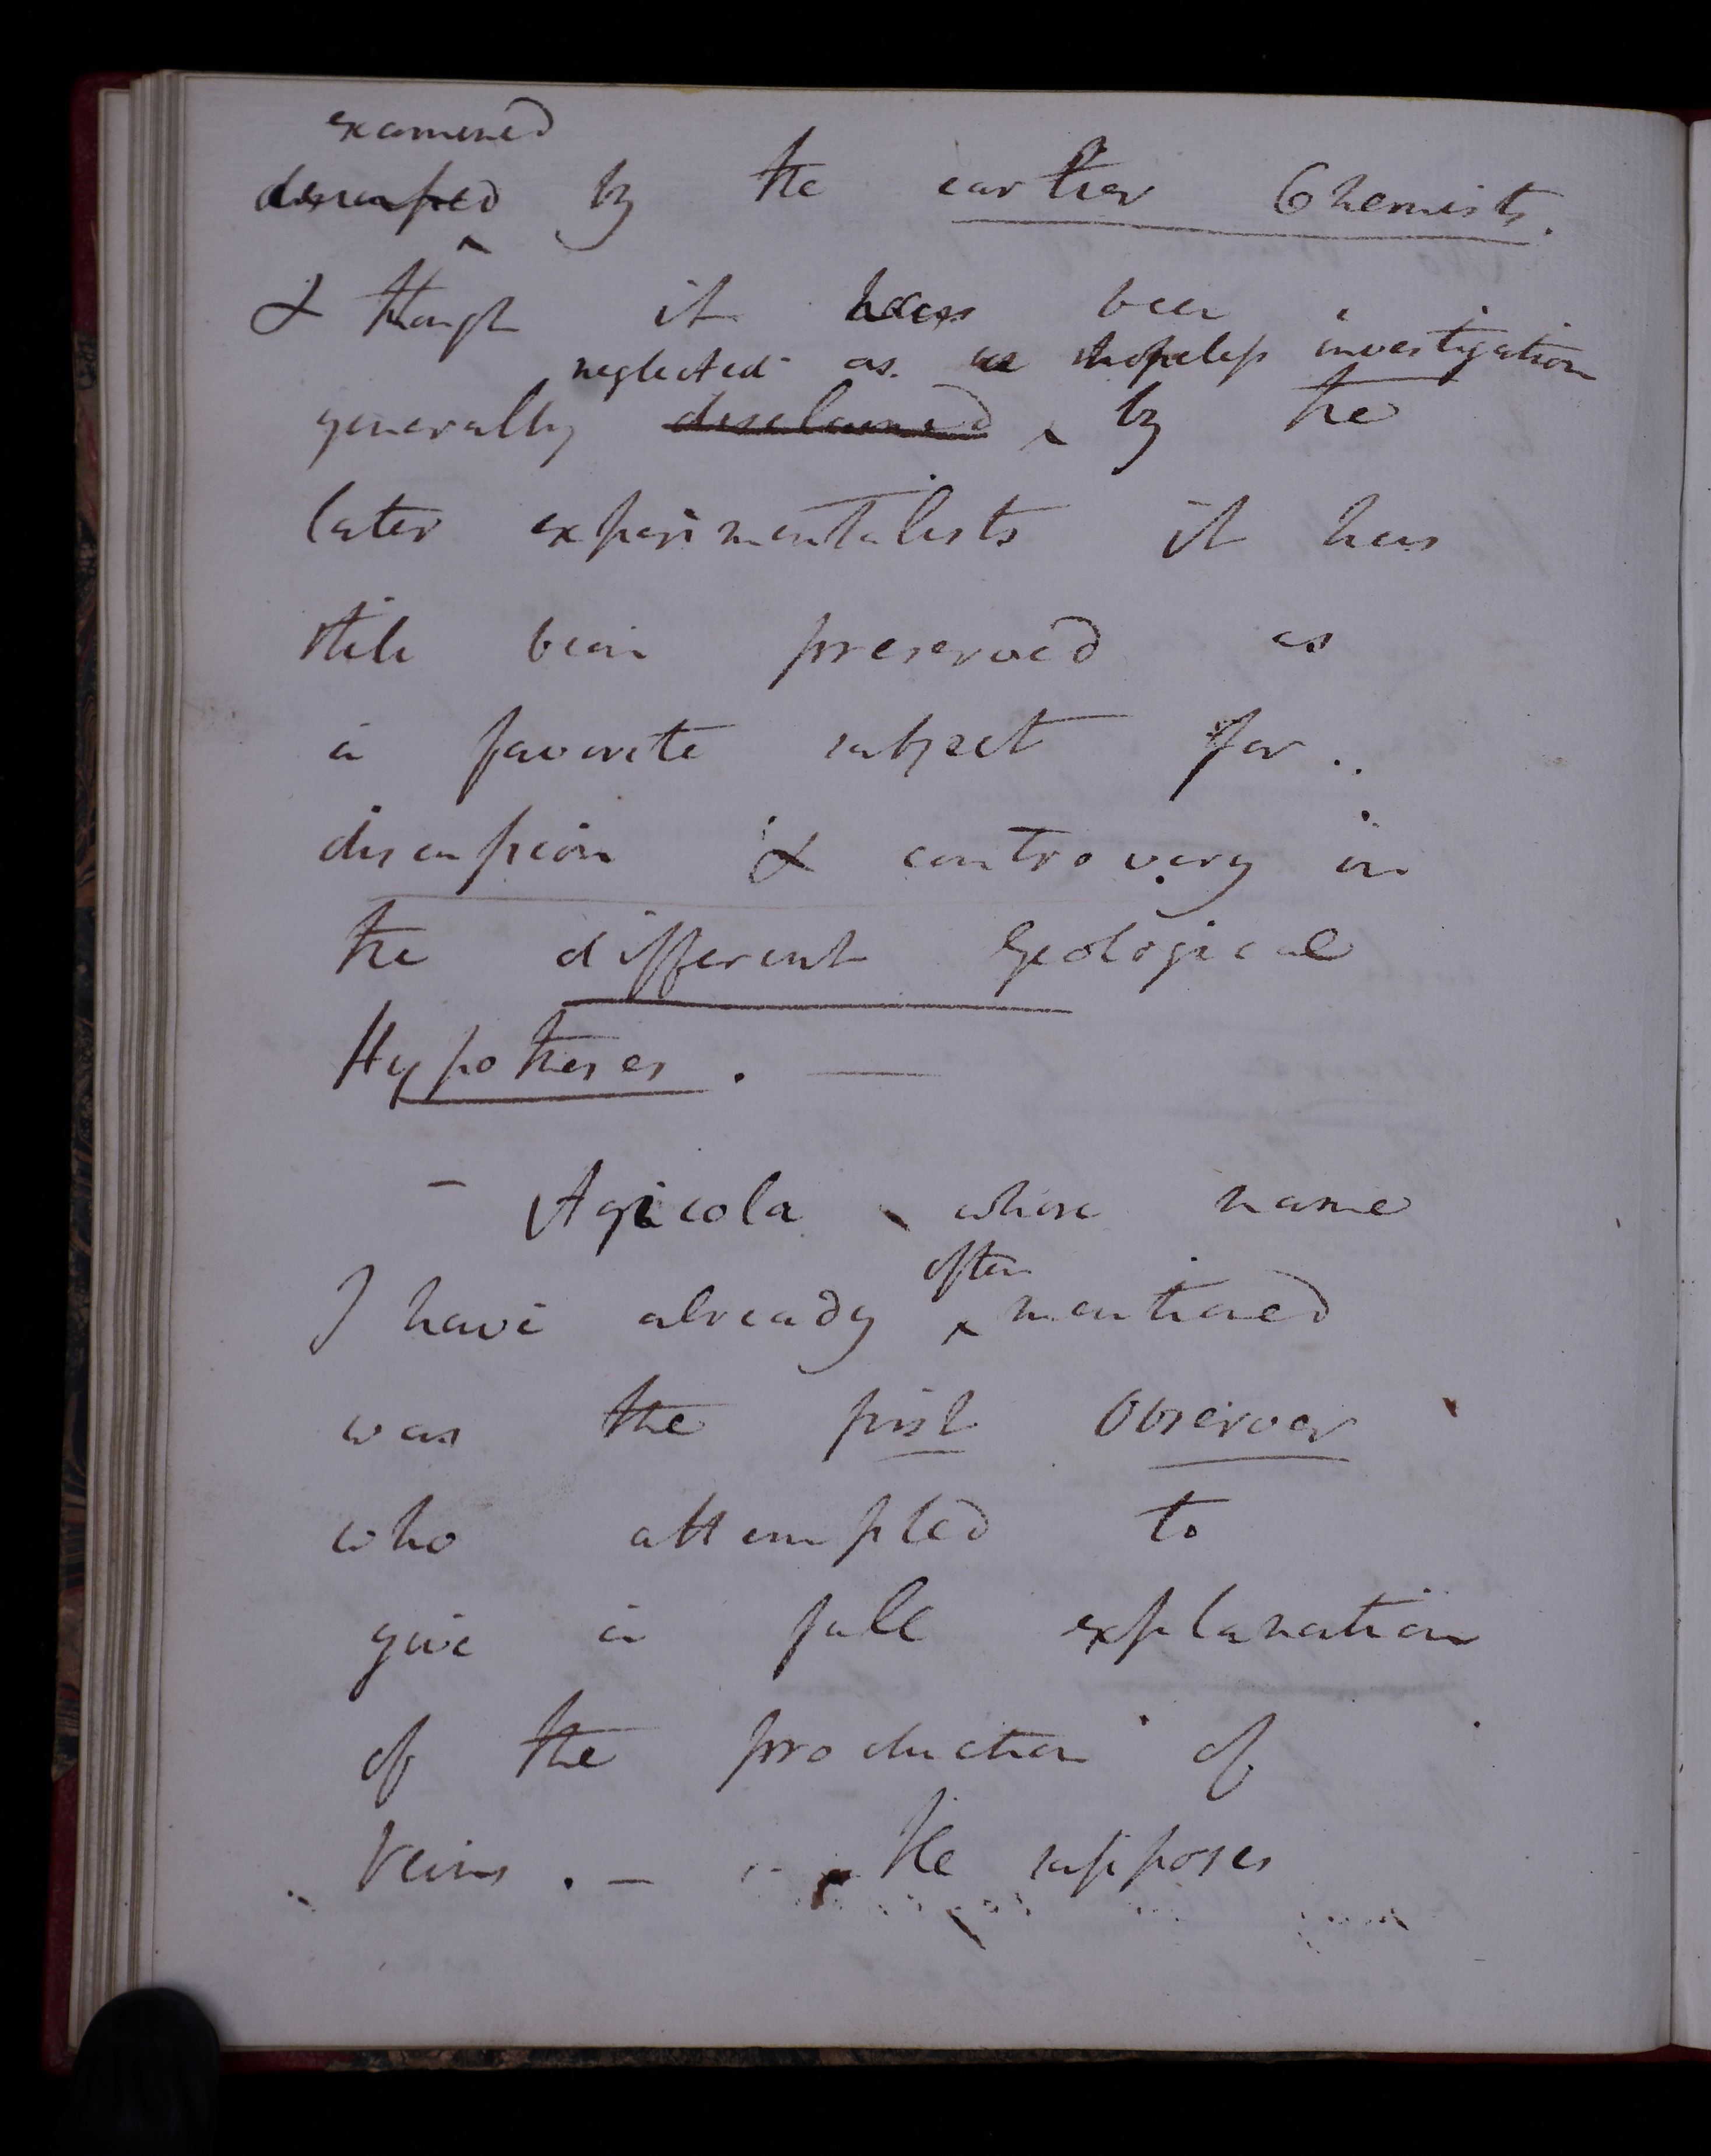 examined
discussed by the earlier Chemists.
& though it has been
neglected as a hopeless investigation
generally disclaimed by the
later experimentalists it has
still been preserved as
a favorite subject for ..
discussion & controversy in
the different Geological
Hypotheses. —
– Agricola, whose name
often
I have already mentioned
was the first Observer
who attempted to
give a full explanation
of the production of
Veins. – He supposes